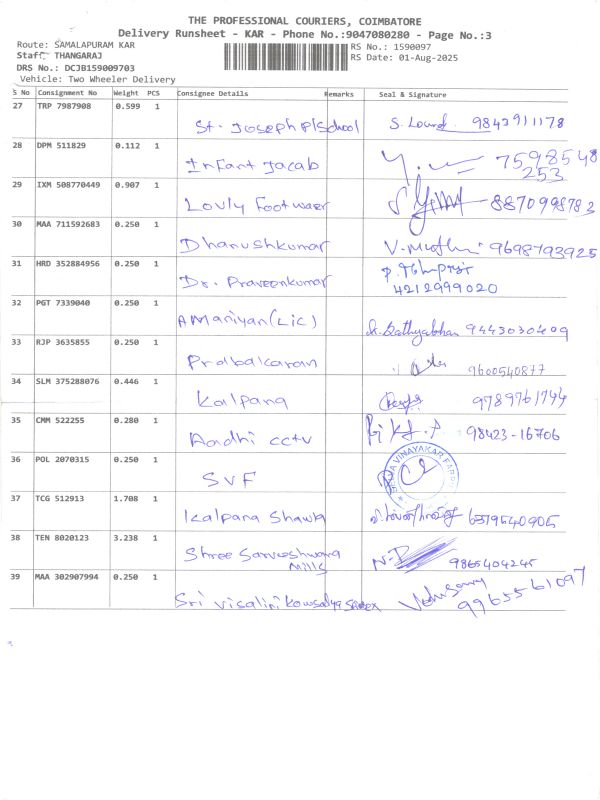 THE PROFESSIONAL COURIERS, COIMBATORE
Delivery Runsheet - KAR - Phone No.:9047080280 - Page No.:3
Route: SAMALAPURAM KAR RS No.: 1590097
Staff: THANGARAJ RS Date: 01-Aug-2025
DRS No.: DCJB159009703
Vehicle: Two Wheeler Delivery
S No Consignment No Weight PCS Consignee Details Remarks Seal & Signature
27 TRP 7987908 0.599 1
St. Joseph P/School S. Lourd 9843911178
28 DPM 511829 0.112 1
Infant Jacab 7598548
253
29 IXM 508770449 0.907 1
Lovly Footwear 8870998783
30 MAA 711592683 0.250 1
Dhanushkumar 9698793925
31 HRD 352884956 0.250 1
Dr. Praveenkumar
4212999020
32 PGT 7339040 0.250 1
A Maniyan (Lic) 9443030409
33 RJP 3635855 0.250 1
Prabakaran 9600540877
34 SLM 375288076 0.446 1
Kalpana 9789761744
35 CMM 522255 0.280 1
Aadhi cctv 98423-16706
36 POL 2070315 0.250 1
SVF VINAYAKAR
37 TCG 512913 1.708 1
Kalpana Shawla 6379540905
38 TEN 8020123 3.238 1
Shree Sarveshwara
Mills N.P 9865404245
39 MAA 302907994 0.250 1
Sri Visalini Kowsalya 99655 61097